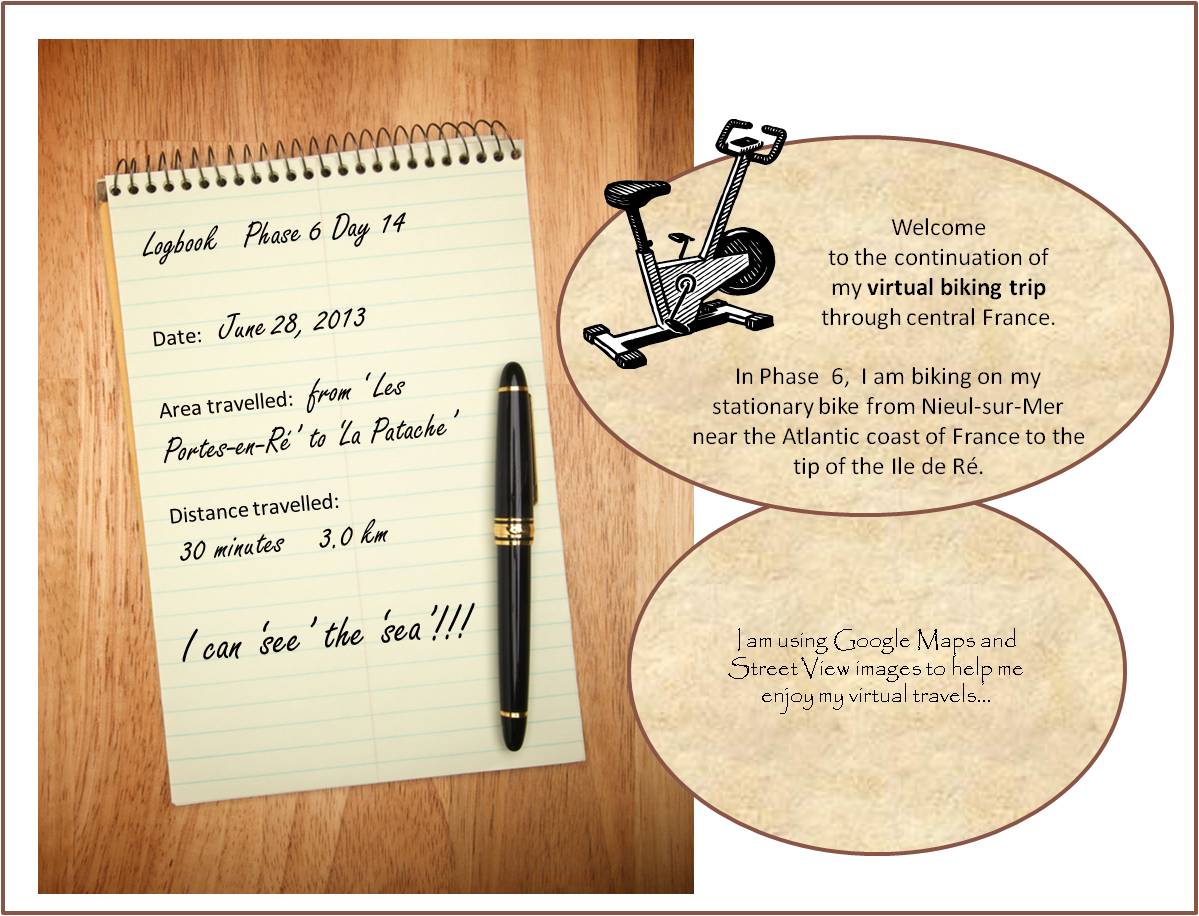 Logbook Phase 6 Day 14
Date: June 28, 2013
Area travelled: from ‘Les
Portes-en-Ré’ to ‘La Patache’
Distance travelled:
30 minutes 3.0 km
I can ‘see’ the ‘sea’!!!
Welcome
to the continuation of
my virtual biking trip
through central France.
In Phase 6, I am biking on my
stationary bike from Nieul-sur-Mer
near the Atlantic coast of France to the
tip of the Ile de Ré.
I am using Google Maps and
Street View images to help me
enjoy my virtual travels...